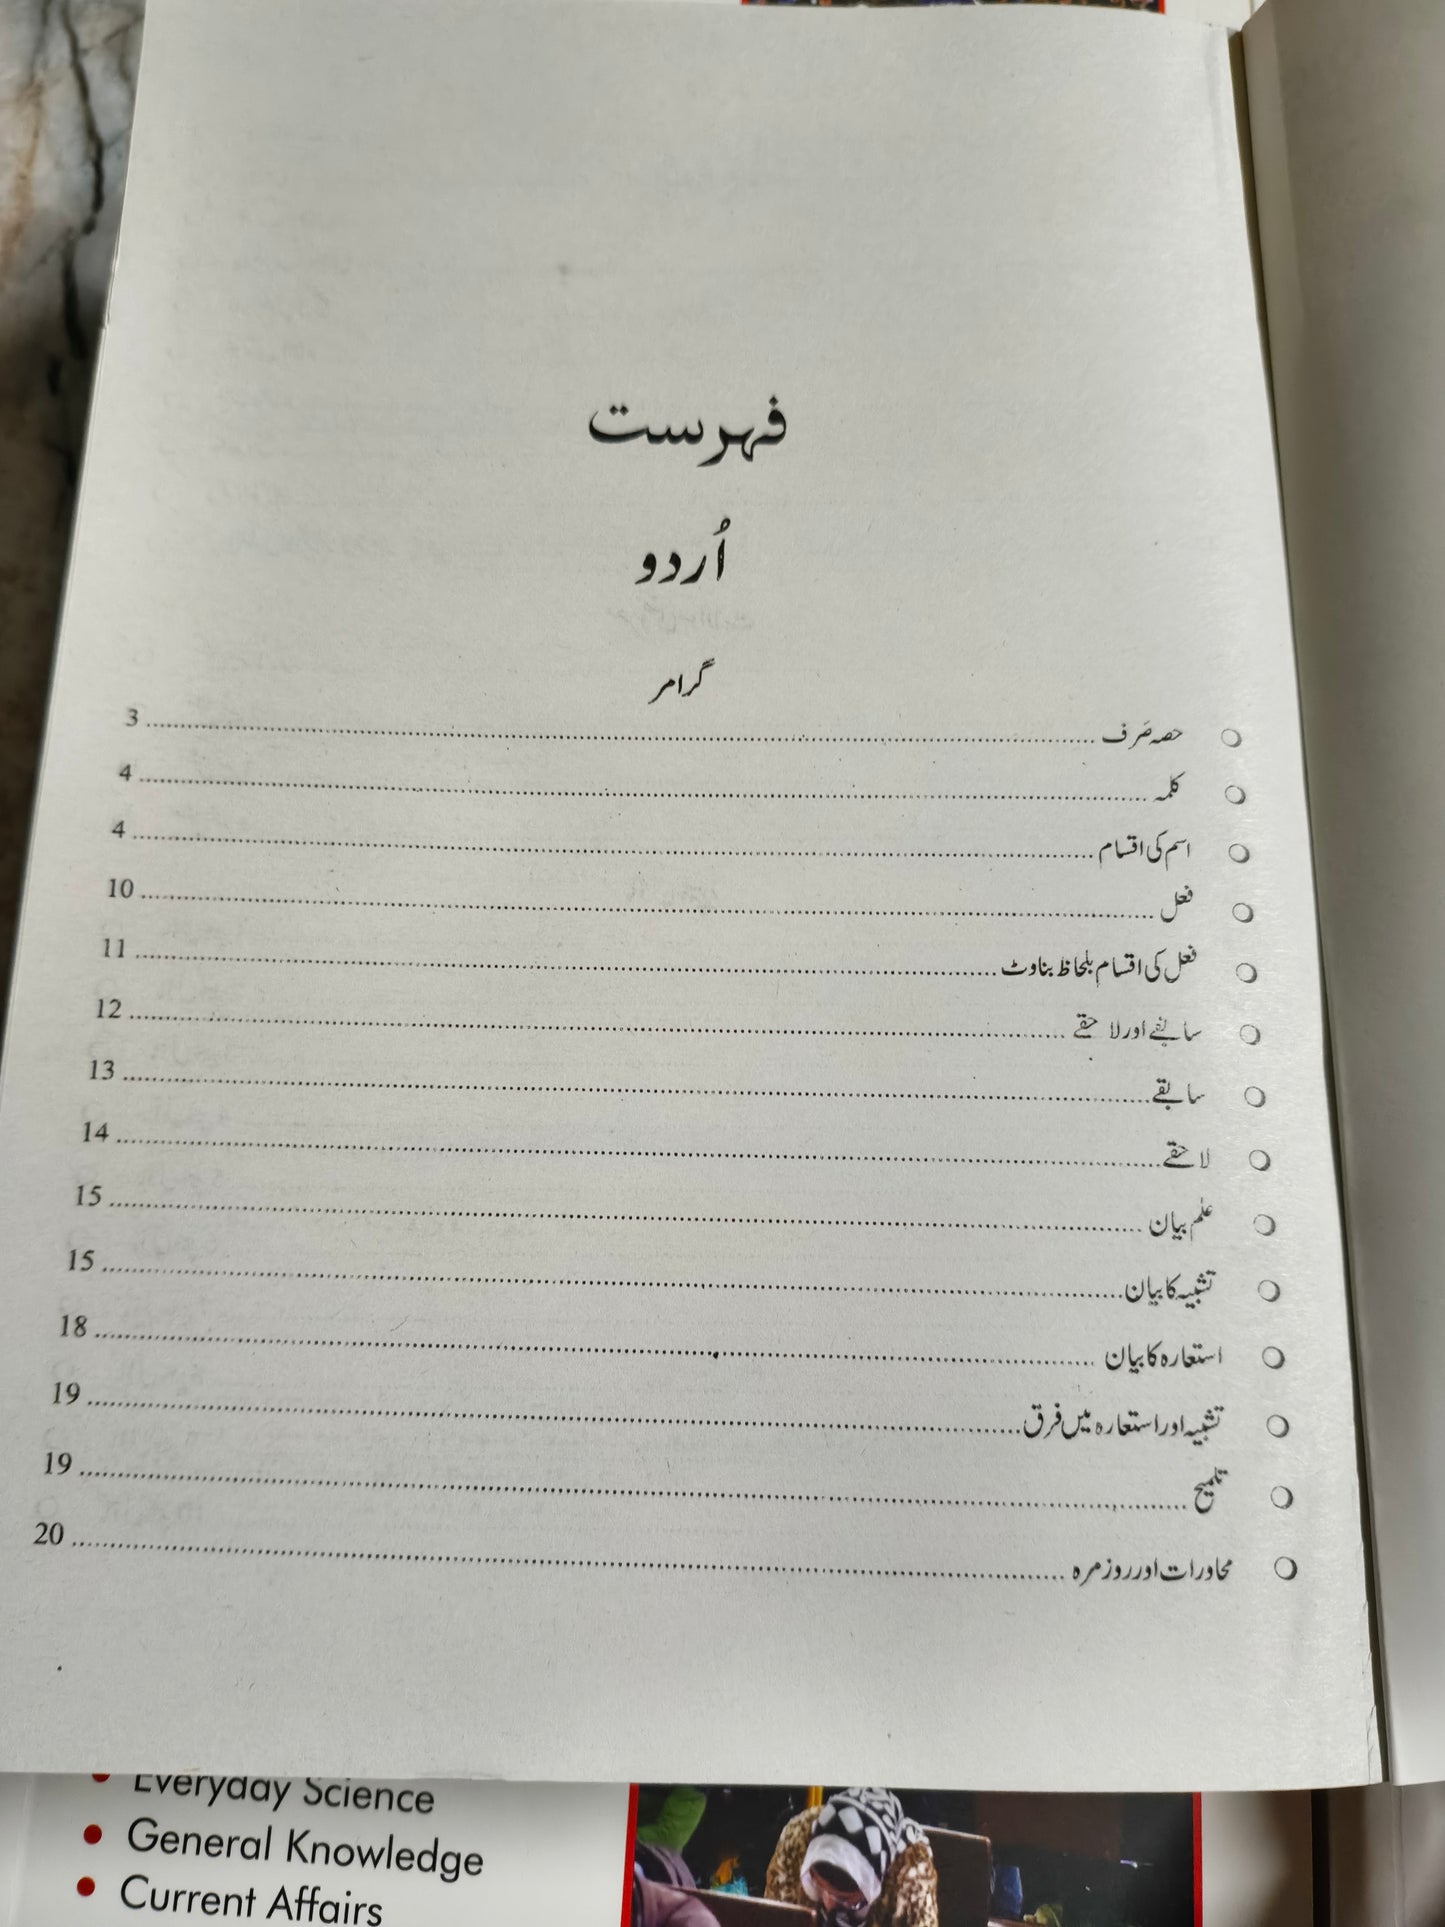 فہرست
اُردو
گرامر
حصہ صَرف ........ 3
کلمہ ........ 4
اسم کی اقسام ........ 4
فعل ........ 10
فعل کی اقسام بلحاظ بناوٹ ........ 11
سابقے اور لاحقے ........ 12
سابقے ........ 13
لاحقے ........ 14
علم بیان ........ 15
تشبیہ کا بیان ........ 15
استعارہ کا بیان ........ 18
تشبیہ اور استعارہ میں فرق ........ 19
تلمیح ........ 19
محاورات اور روزمرہ ........ 20
• Everyday Science
• General Knowledge
• Current Affairs